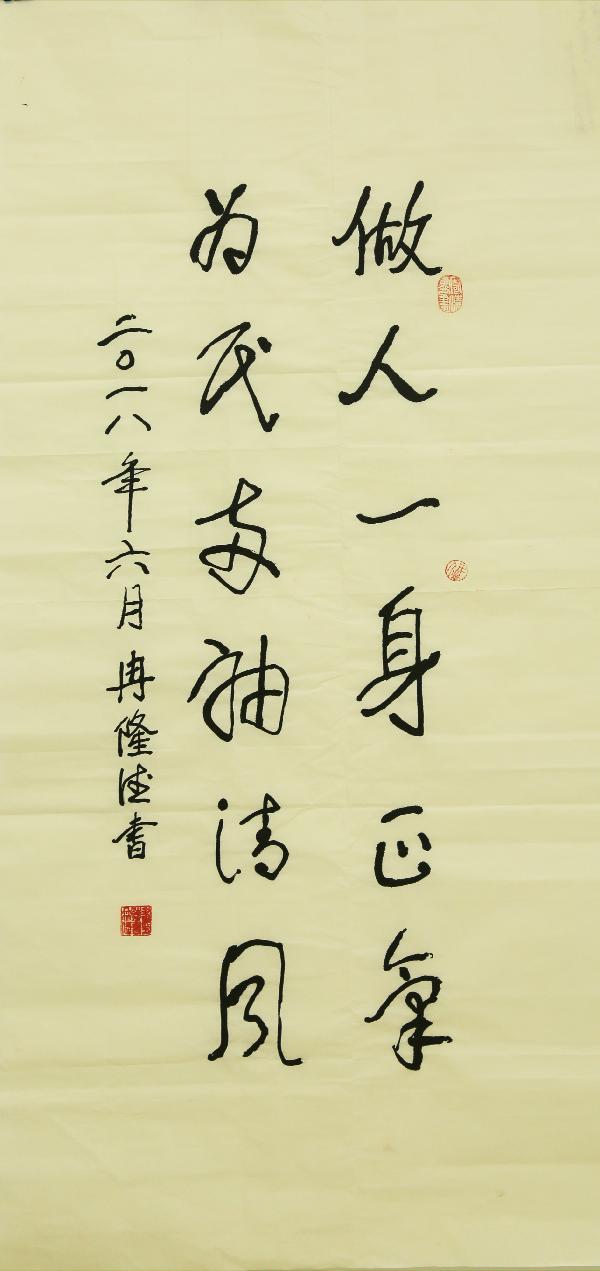 做人一身正氣
为民两袖清风
二〇一八年六月冉隆德书